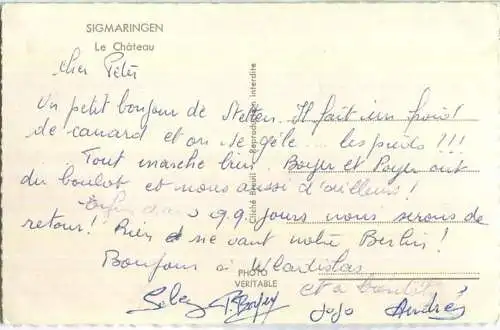 SIGMARINGEN
Le Château
Cher Péter
Un petit bonjour de Stetten. Il fait un froid
de canard et on se gèle... les pieds !!!
Tout marche bien. Boyer et Poyer ont
du boulot et nous aussi d'ailleurs !
Enfin dans 99 jours nous serons de
retour ! Rien ne vaut notre Berlin !
Bonjour à Wladislas
et a
Cliché Breuil - Reproduction interdite
PHOTO
VERITABLE
P. Boyer
JoJo André